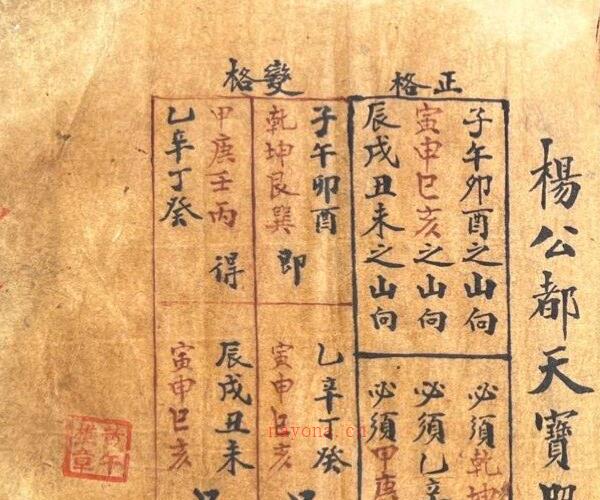 楊公都天寶
正格
子午卯酉之山向
必須乾坤
寅申巳亥之山向
必須乙辛
辰戌丑未之山向
必須甲庚
變格
子午卯酉
乾坤艮巽 即
乙辛丁癸
寅申巳亥
甲庚壬丙 得
乙辛丁癸
辰戌丑未
寅申巳亥